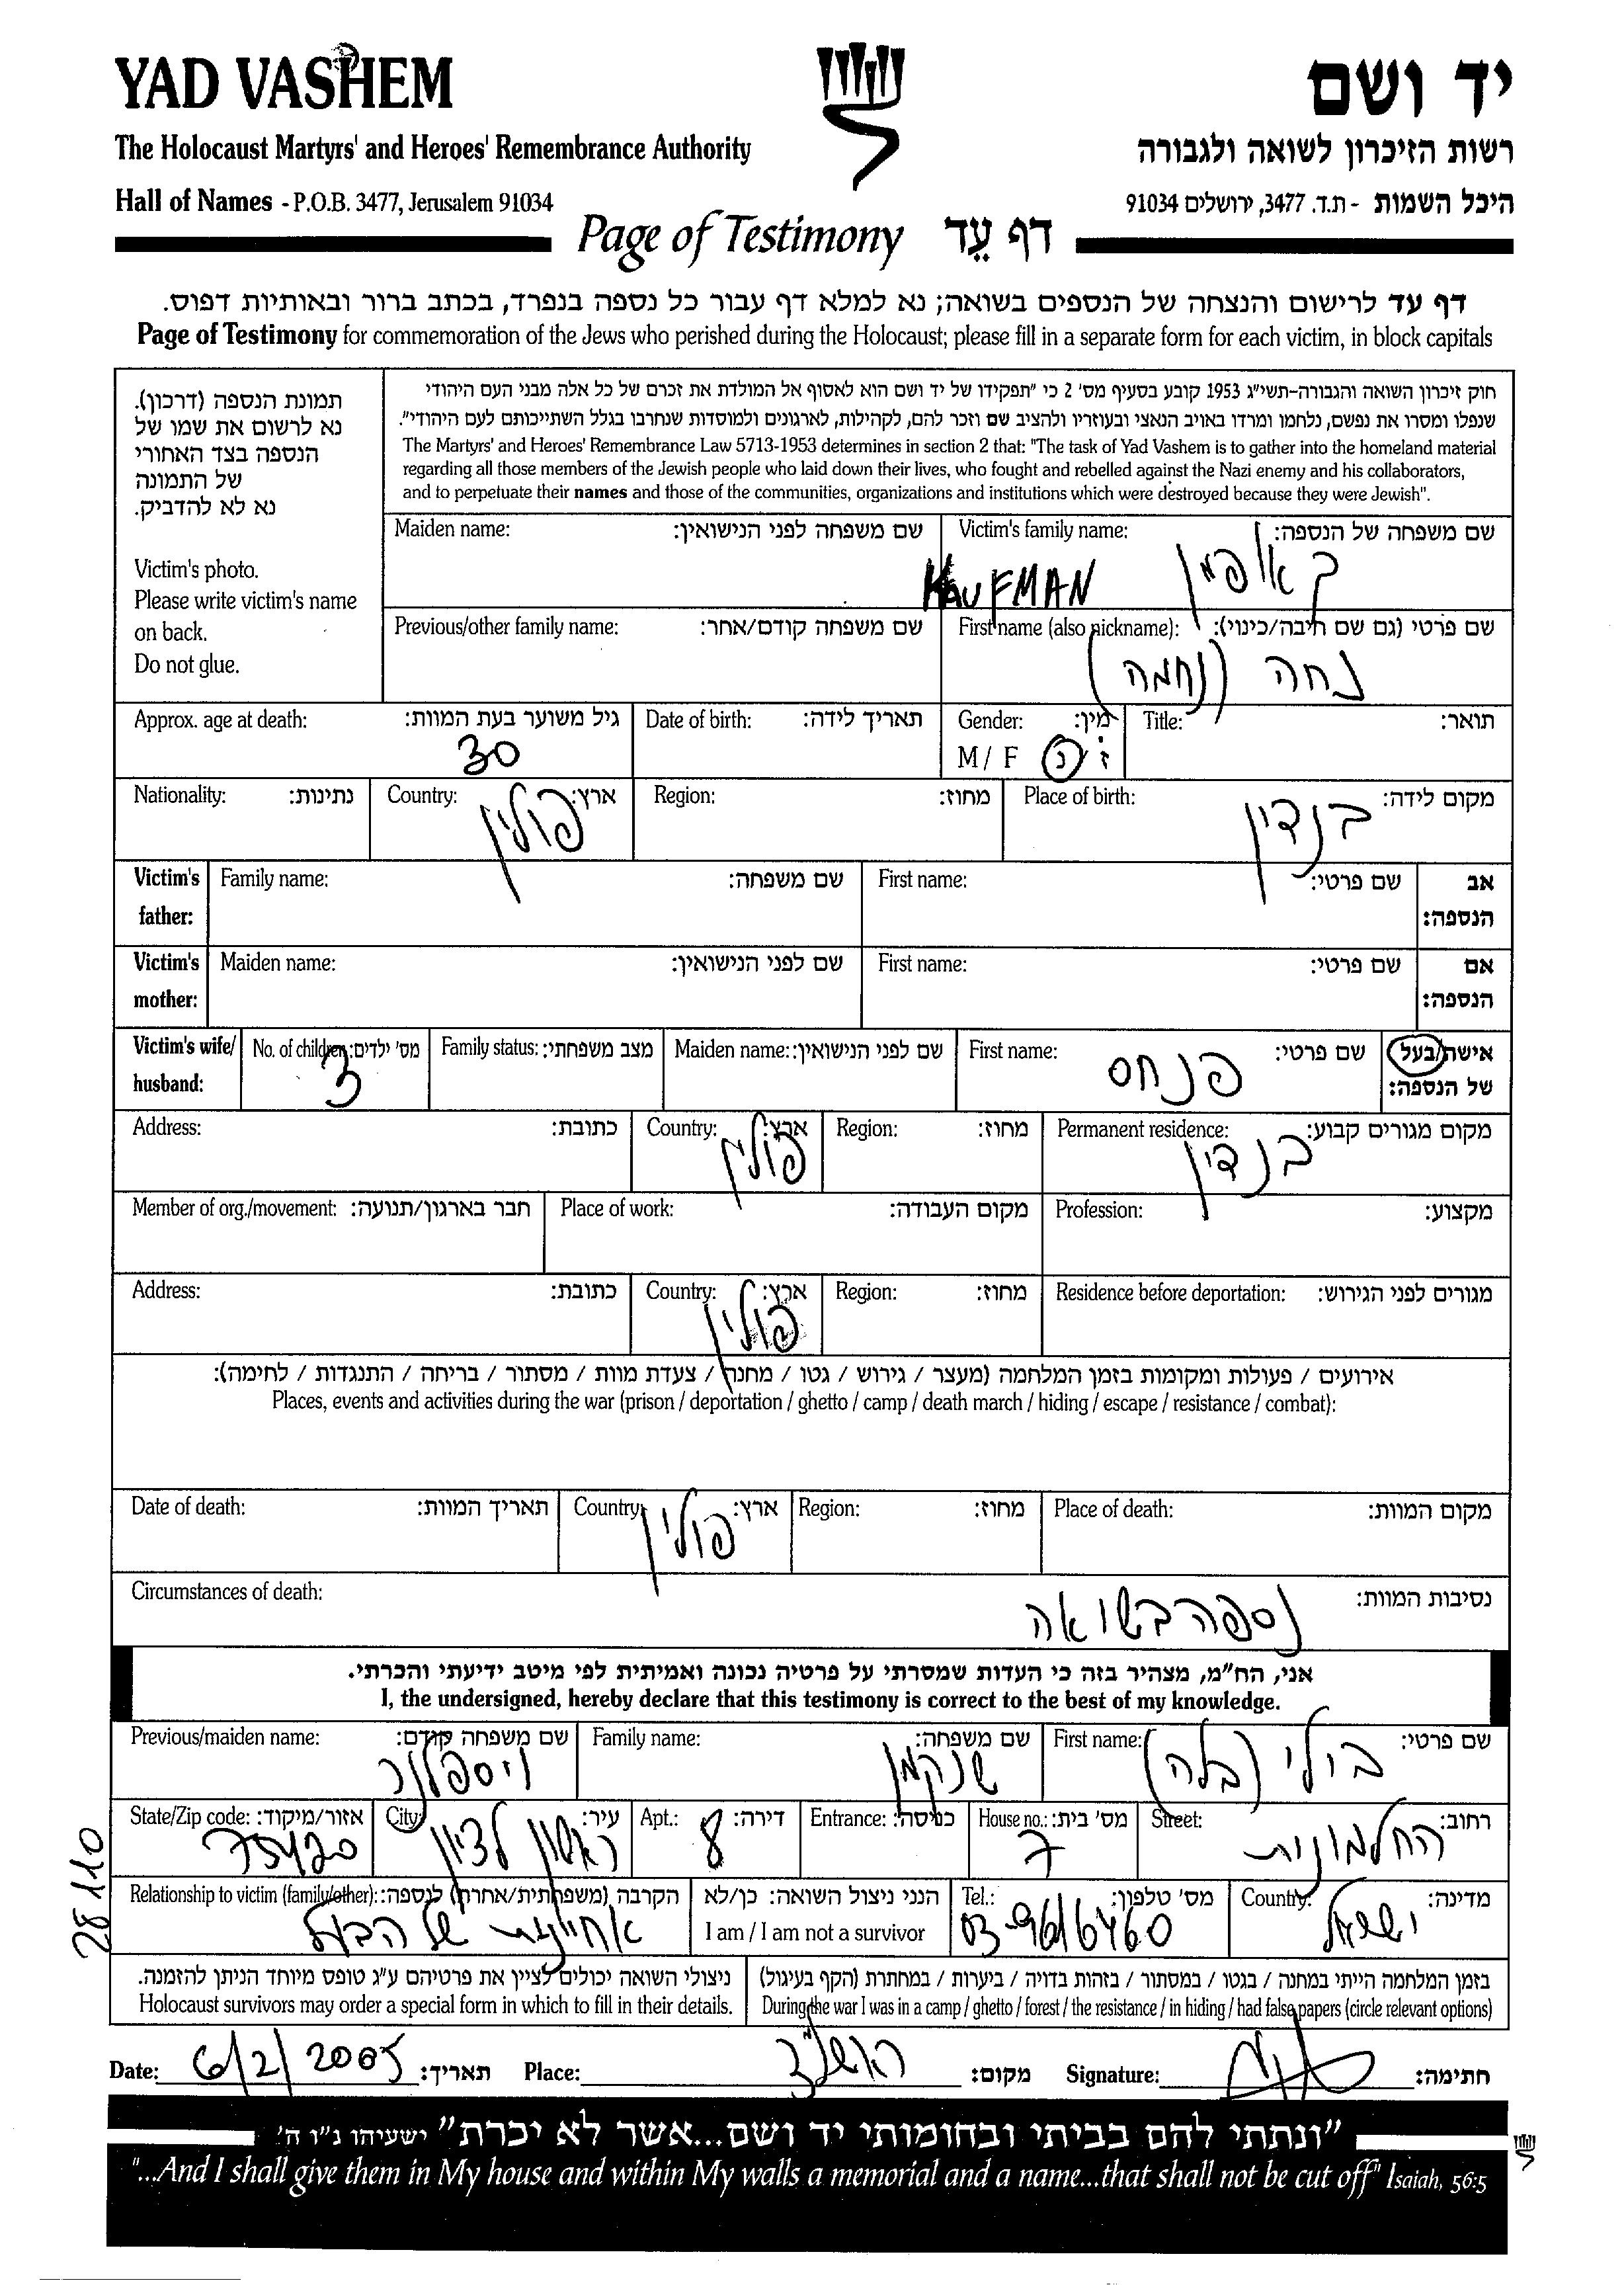 YAD VASHEM
יד ושם
The Holocaust Martyrs' and Heroes' Remembrance Authority
רשות הזיכרון לשואה ולגבורה
Hall of Names - P.O.B. 3477, Jerusalem 91034
היכל השמות - ת.ד. 3477, ירושלים 91034
Page of Testimony דף עֵד
דף עד לרישום והנצחה של הנספים בשואה; נא למלא דף עבור כל נספה בנפרד, בכתב ברור ובאותיות דפוס.
Page of Testimony for commemoration of the Jews who perished during the Holocaust; please fill in a separate form for each victim, in block capitals
תמונת הנספה (דרכון).
נא לרשום את שמו של
הנספה בצד האחורי
של התמונה
נא לא להדביק.
Victim's photo.
Please write victim's name
on back.
Do not glue.
חוק זיכרון השואה והגבורה-תשי"ג 1953 קובע בסעיף מס' 2 כי "תפקידו של יד ושם הוא לאסוף אל המולדת את זכרם של כל אלה מבני העם היהודי
שנפלו ומסרו את נפשם, נלחמו ומרדו באויב הנאצי ובעוזריו ולהציב שם וזכר להם, לקהילות, לארגונים ולמוסדות שנחרבו בגלל השתייכותם לעם היהודי".
The Martyrs' and Heroes' Remembrance Law 5713-1953 determines in section 2 that: "The task of Yad Vashem is to gather into the homeland material
regarding all those members of the Jewish people who laid down their lives, who fought and rebelled against the Nazi enemy and his collaborators,
and to perpetuate their names and those of the communities, organizations and institutions which were destroyed because they were Jewish".
Maiden name: שם משפחה לפני הנישואין:
Victim's family name: שם משפחה של הנספה:
KAUFMAN קאופמן
Previous/other family name: שם משפחה קודם/אחר:
First name (also nickname): שם פרטי (גם שם חיבה/כינוי):
נחה (נחמה)
Approx. age at death: גיל משוער בעת המוות:
30
Date of birth: תאריך לידה:
Gender: מין:
M / F ז / נ
Title: תואר:
Nationality: נתינות:
Country: ארץ:
פולין
Region: מחוז:
Place of birth: מקום לידה:
בנדין
Victim's father: Family name: שם משפחה:
First name: שם פרטי:
אב הנספה:
Victim's mother: Maiden name: שם לפני הנישואין:
First name: שם פרטי:
אם הנספה:
Victim's wife/ husband: No. of children: מס' ילדים:
3
Family status: מצב משפחתי:
Maiden name: שם לפני הנישואין:
First name: שם פרטי:
פנחס
אישה/בעל של הנספה:
Address: כתובת:
Country: ארץ:
פולין
Region: מחוז:
Permanent residence: מקום מגורים קבוע:
בנדין
Member of org./movement: חבר בארגון/תנועה:
Place of work: מקום העבודה:
Profession: מקצוע:
Address: כתובת:
Country: ארץ:
פולין
Region: מחוז:
Residence before deportation: מגורים לפני הגירוש:
אירועים / פעולות ומקומות בזמן המלחמה (מעצר / גירוש / גטו / מחנה / צעדת מוות / מסתור / בריחה / התנגדות / לחימה):
Places, events and activities during the war (prison / deportation / ghetto / camp / death march / hiding / escape / resistance / combat):
Date of death: תאריך המוות:
Country: ארץ:
פולין
Region: מחוז:
Place of death: מקום המוות:
Circumstances of death: נסיבות המוות:
נספה בשואה
אני, הח"מ, מצהיר בזה כי העדות שמסרתי על פרטיה נכונה ואמיתית לפי מיטב ידיעתי והכרתי.
I, the undersigned, hereby declare that this testimony is correct to the best of my knowledge.
Previous/maiden name: שם משפחה קודם:
Family name: שם משפחה:
שנקמן
First name: שם פרטי:
בולי (בלה)
State/Zip code: אזור/מיקוד:
75420
City: עיר:
ראשון לציון
Apt.: דירה:
8
Entrance: כניסה:
House no.: מס' בית:
7
Street: רחוב:
החלמונית
28110
Relationship to victim (family/other): הקרבה (משפחתית/אחרת) לנספה:
אחיינית של הבעל
הנני ניצול השואה: כן/לא
I am / I am not a survivor
Tel.: מס' טלפון:
03-9616460
Country: מדינה:
ישראל
ניצולי השואה יכולים לציין את פרטיהם ע"ג טופס מיוחד הניתן להזמנה.
Holocaust survivors may order a special form in which to fill in their details.
בזמן המלחמה הייתי במחנה / בגטו / במסתור / בזהות בדויה / ביערות / במחתרת (הקף בעיגול)
During the war I was in a camp / ghetto / forest / the resistance / in hiding / had false papers (circle relevant options)
Date: 6/2/2005 תאריך:
Place: ראשל"צ מקום:
Signature: חתימה:
"ונתתי להם בביתי ובחומותי יד ושם...אשר לא יכרת" ישעיהו נ"ו ה'
"...And I shall give them in My house and within My walls a memorial and a name...that shall not be cut off" Isaiah, 56:5